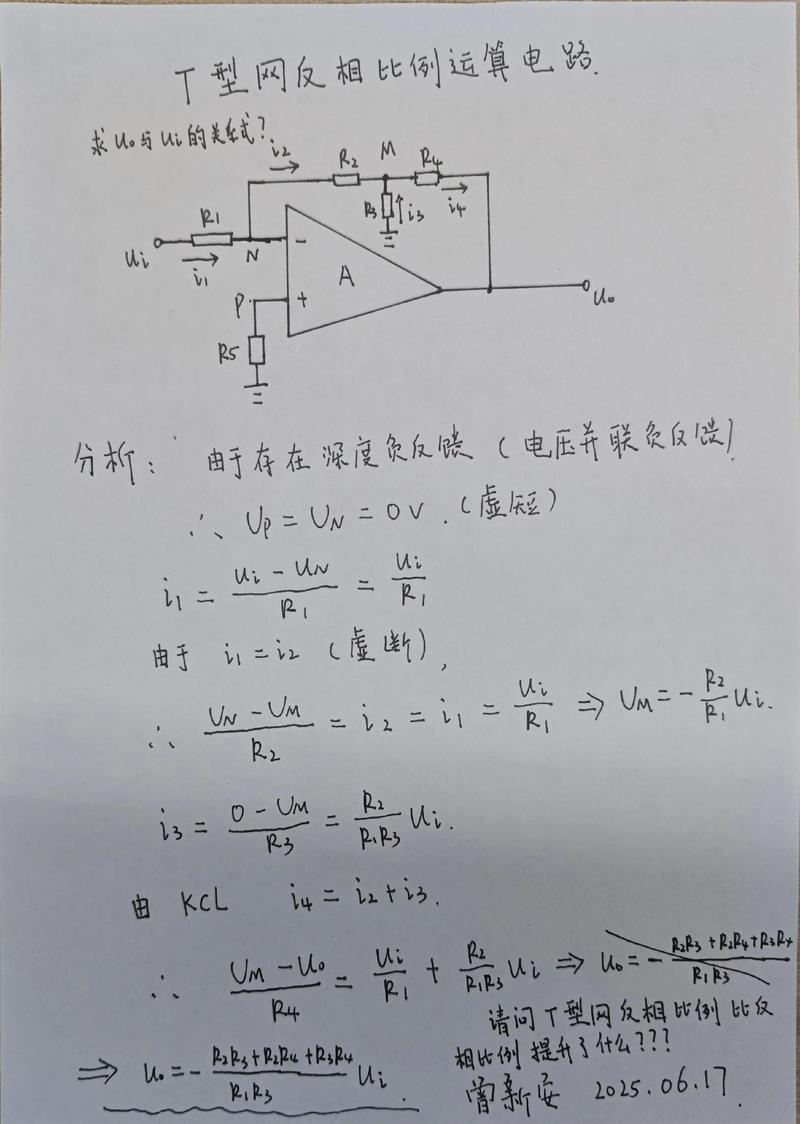 T型网反相比例运算电路.
求Uo与Ui的关系式?
i2 R2 M R4
R3 i3 i4
R1
Ui i1 N - A
P +
Uo
R5
分析: 由于存在深度负反馈 (电压并联负反馈)
∴ UP = UN = 0V. (虚短)
i1 = (Ui - UN)/R1 = Ui/R1
由于 i1 = i2 (虚断),
∴ (UN - UM)/R2 = i2 = i1 = Ui/R1 ⇒ UM = - R2/R1 Ui.
i3 = (0 - UM)/R3 = R2/(R1R3) Ui.
由 KCL i4 = i2 + i3.
∴ (UM - Uo)/R4 = Ui/R1 + R2/(R1R3) Ui ⇒ Uo = - (R2R3 + R2R4 + R3R4)/(R1R3)
请问T型网反相比例比反
相比例提升了什么???
⇒ Uo = - (R2R3 + R2R4 + R3R4)/(R1R3) Ui.
曾新安 2025.06.17.